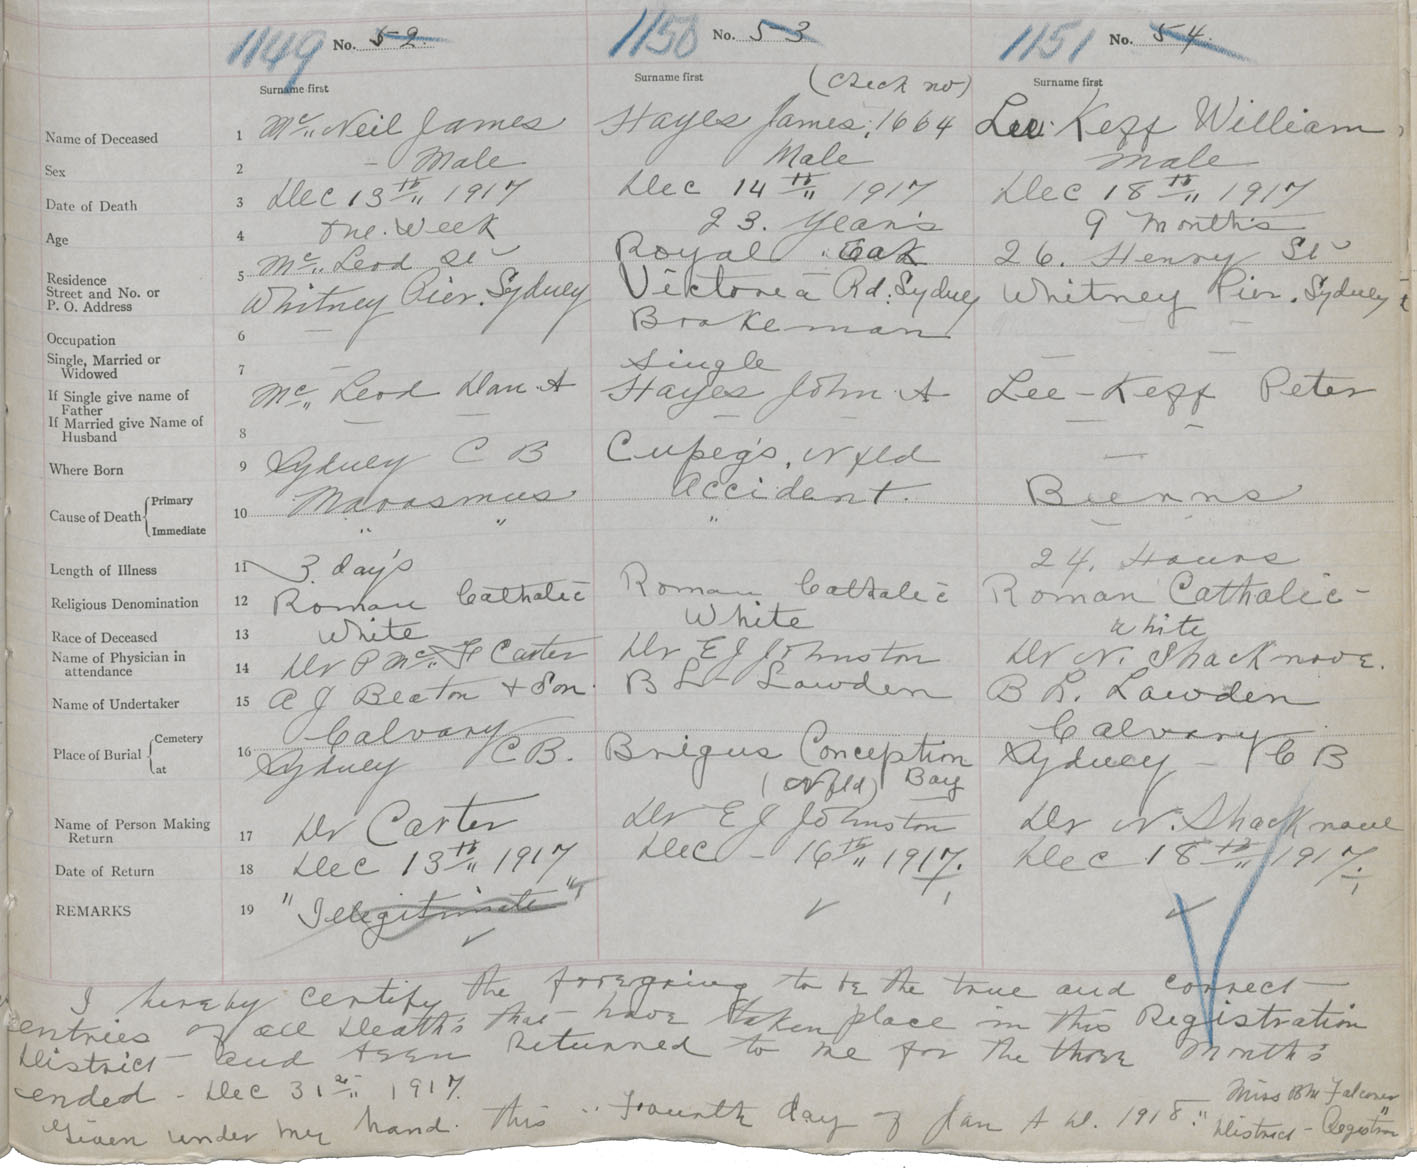 1149 No. 52 1150 No. 53 1151 No. 54
Surname first Surname first (Check no) Surname first
Name of Deceased 1 Mc,, Neil James Hayes James; 1664 Lee Keff William
Sex 2 - Male Male Male
Date of Death 3 Dec 13th,, 1917 Dec 14th,, 1917 Dec 18th,, 1917
Age 4 One. Week 23. Year's 9 Month's
Residence Street and No. or P. O. Address 5 Mc,, Leod St Royal Oak 26. Henry St
Whitney Pier. Sydney Victoria Rd. Sydney Whitney Pier. Sydney
Occupation 6 — Brakeman — —
Single, Married or Widowed 7 — Single — —
If Single give name of Father Mc,, Leod Dan A Hayes John A Lee-Keff Peter
If Married give Name of Husband 8 — — — — —
Where Born 9 Sydney C B Cupeg's, Nfld —
Cause of Death { Primary 10 Marasmus Accident. Burns
Immediate " " " — —
Length of Illness 11 3. day's 24. Hours
Religious Denomination 12 Roman Catholic Roman Catholic Roman Catholic-
Race of Deceased 13 White White White
Name of Physician in attendance 14 Dr P Mc,, F Carter Dr E J Johnston Dr N. Shacknove.
Name of Undertaker 15 A J Beaton + Son. B L- Lowden B L. Lowden
Place of Burial { Cemetery 16 Calvary Brigus Conception Calvary
at Sydney C B. (Nfld) Bay Sydney - C B
Name of Person Making Return 17 Dr Carter Dr E J Johnston Dr N. Shacknove
Date of Return 18 Dec 13th,, 1917 Dec - 16th,, 1917. Dec 18th,, 1917.
REMARKS 19 "Ilegitimate" ✓ ✓ ✓
I hereby certify the foregoing to be the true and correct-
entries of all Death's that- have taken place in this Registration
District- and been Returned to me for the three Month's
ended - Dec 31st,, 1917.
Given under my hand. this .. Fourth day of Jan A D. 1918."
Miss B M Falconer
District- Registrar"